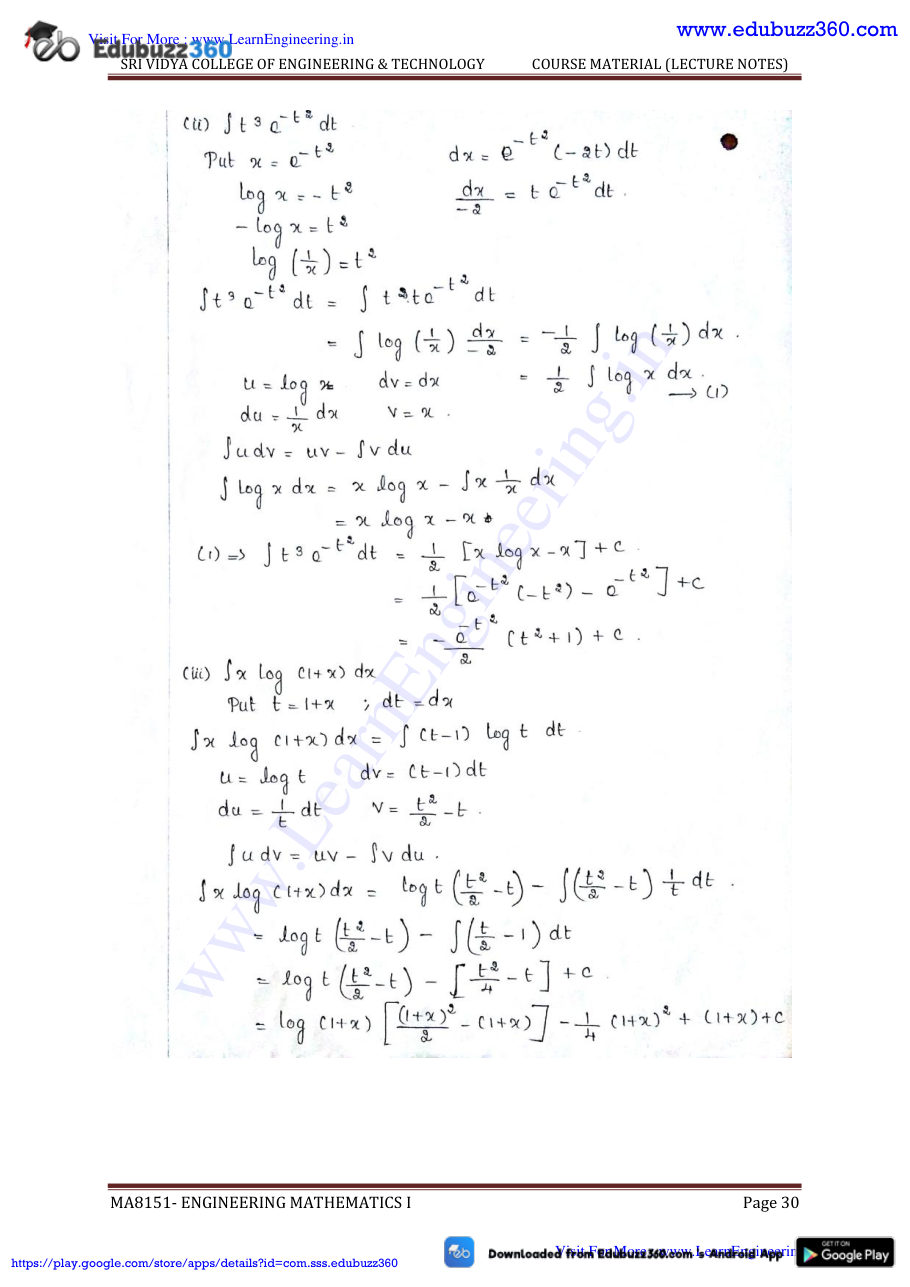 www.edubuzz360.com
Visit For More : www.LearnEngineering.in
Edubuzz360
SRI VIDYA COLLEGE OF ENGINEERING & TECHNOLOGY COURSE MATERIAL (LECTURE NOTES)
(ii) ∫ t³ e^{-t²} dt
Put x = e^{-t²} dx = e^{-t²} (-2t) dt
log x = - t² dx/-2 = t e^{-t²} dt .
- log x = t²
log (1/x) = t²
∫ t³ e^{-t²} dt = ∫ t². t e^{-t²} dt
= ∫ log (1/x) dx/-2 = -1/2 ∫ log (1/x) dx .
u = log x dv = dx = 1/2 ∫ log x dx . → (1)
du = 1/x dx v = x .
∫ u dv = uv - ∫ v du
∫ log x dx = x log x - ∫ x 1/x dx
= x log x - x
(1) => ∫ t³ e^{-t²} dt = 1/2 [x log x - x] + c .
= 1/2 [e^{-t²} (-t²) - e^{-t²}] + c
= - e^{-t²}/2 (t² + 1) + c .
(iii) ∫ x log (1+x) dx
Put t = 1+x ; dt = dx
∫ x log (1+x) dx = ∫ (t-1) log t dt .
u = log t dv = (t-1) dt
du = 1/t dt v = t²/2 - t .
∫ u dv = uv - ∫ v du .
∫ x log (1+x) dx = log t (t²/2 - t) - ∫ (t²/2 - t) 1/t dt .
= log t (t²/2 - t) - ∫ (t/2 - 1) dt
= log t (t²/2 - t) - [t²/4 - t] + c .
= log (1+x) [(1+x)²/2 - (1+x)] - 1/4 (1+x)² + (1+x) + c
www.LearnEngineering.in
MA8151- ENGINEERING MATHEMATICS I Page 30
Downloaded from Edubuzz360.com 's Android App
Visit For More : www.LearnEngineerin
GET IT ON
Google Play
https://play.google.com/store/apps/details?id=com.sss.edubuzz360